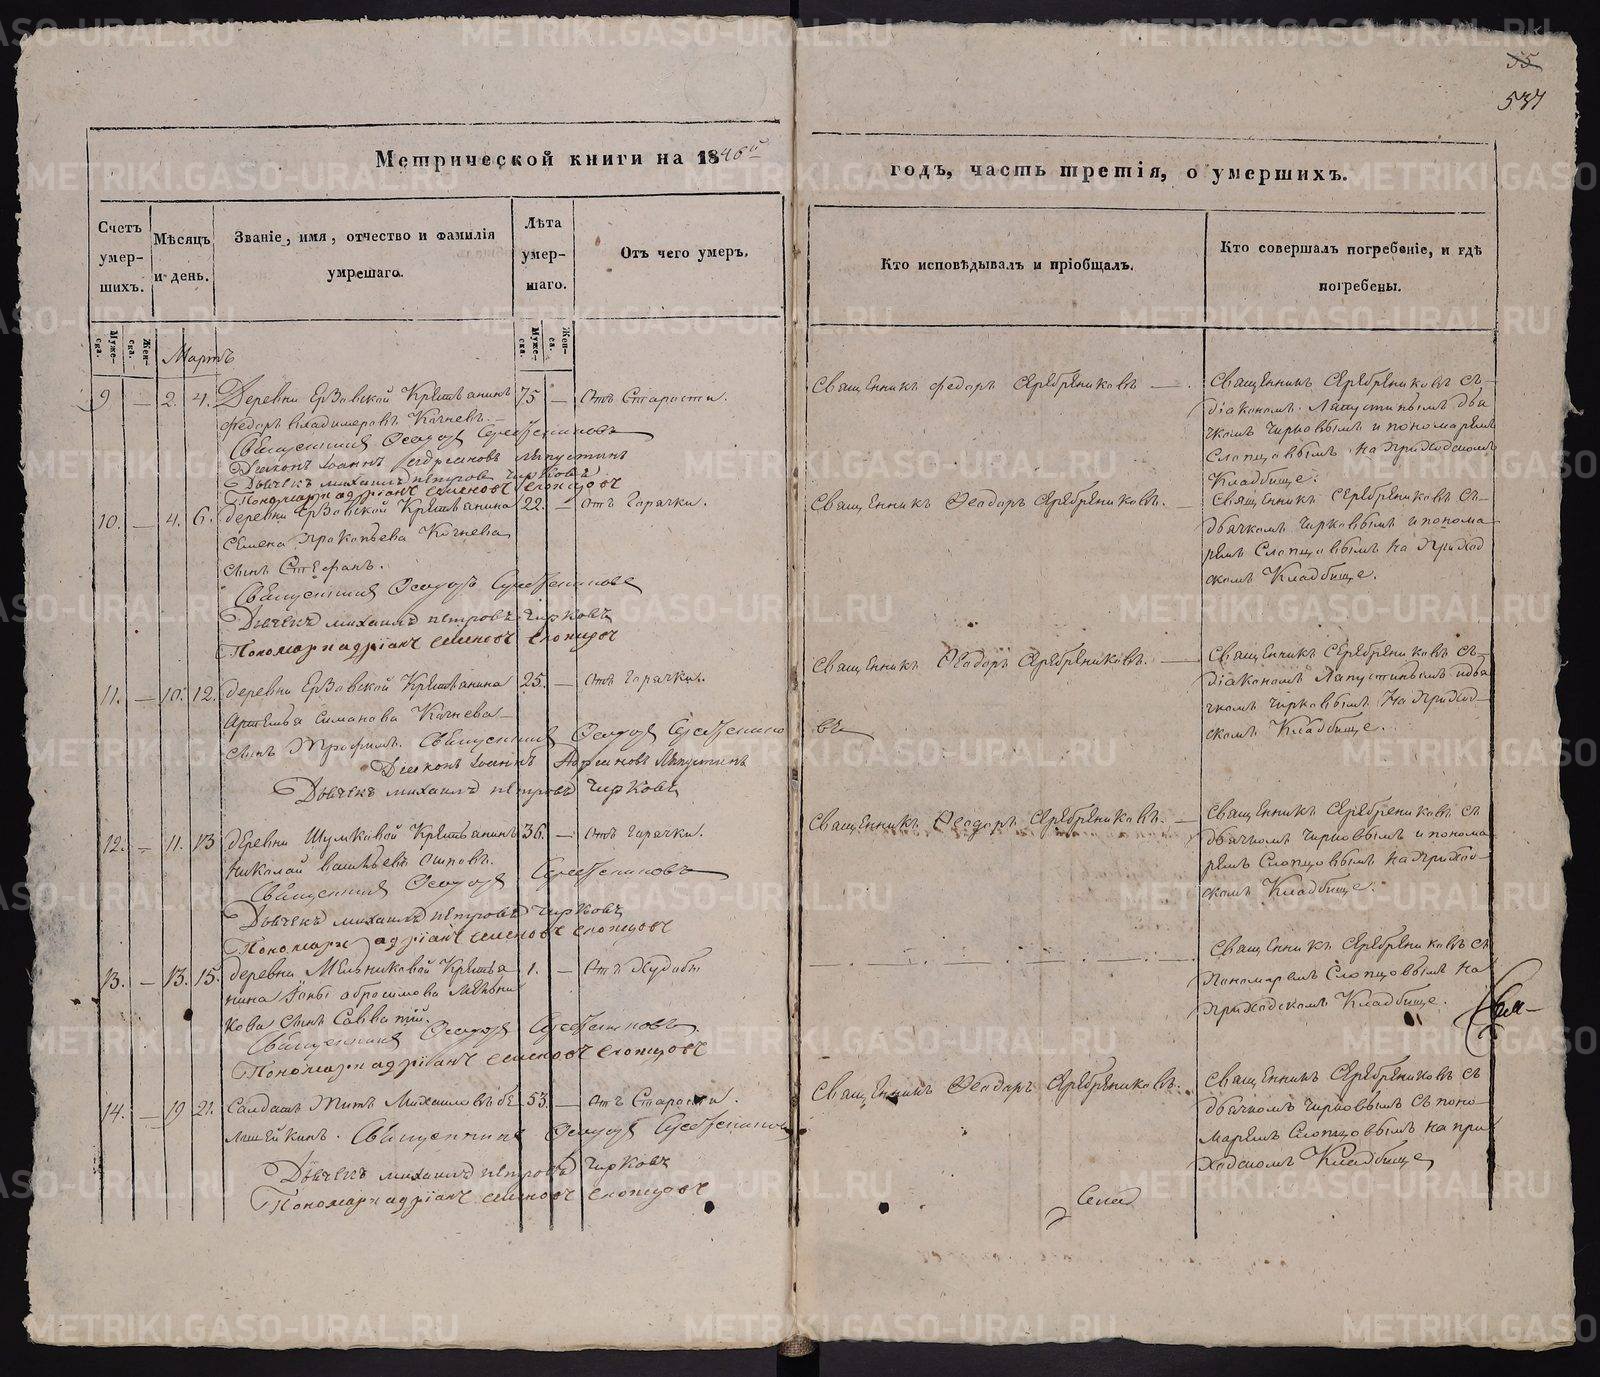 55
537
Метрической книги на 1846й
годъ, часть третія, о умершихъ.
Счетъ умер-
шихъ.
Мѣсяцъ
и день.
Званіе, имя, отчество и фамилія
умрешаго.
Лѣта
умер-
шаго.
Отъ чего умеръ.
Кто исповѣдывалъ и пріобщалъ.
Кто совершалъ погребеніе, и гдѣ
погребены.
Муже-
ска.
Жен-
ска.
Муже-
ска.
Жен-
ск.
Мартъ
9 — 2. 4. Деревни Ерзовской Крестьянинъ 75 — Отъ Старости.
Федоръ Владимеровъ Качневъ.
Священникъ Ѳеодоръ Серебрениковъ
Діаконъ Іоаннъ Лапустинъ
Дьячекъ михаилъ петровъ Чирковъ
Пономарь адріанъ семеновъ слопцовъ
Священникъ Федоръ Серебрениковъ —
Священникъ Серебрениковъ съ
діакономъ Лапустинымъ дья
чкомъ Чирковымъ и пономаремъ
Слопцовымъ на Приходскомъ
Кладбище.
10. — 4. 6. деревни Ерзовской Крестьянина 22. — Отъ Горячки.
Семена Прокопьева Качнева
сынъ Стефанъ.
Священникъ Ѳеодоръ Серебрениковъ
Дьячекъ михаилъ петровъ Чирковъ
Пономарь адріанъ семеновъ слопцовъ
Священникъ Ѳеодоръ Серебрениковъ.
Священникъ Серебрениковъ съ
дьячкомъ Чирковымъ и понома
ремъ Слопцовымъ на Приход
скомъ Кладбище.
11. — 10. 12. деревни Ерзовской Крестьянина 25. — Отъ Горячки.
Артемья Симанова Качнева
сынъ Трофимъ. Священникъ Ѳеодоръ Серебренико
въ
Діаконъ Іоаннъ Лапустинъ
Дьячекъ михаилъ петровъ Чирковъ
Священникъ Ѳеодоръ Серебрениковъ. —
Священникъ Серебрениковъ съ
діакономъ Лапустинымъ и дья
чкомъ Чирковымъ На Приход-
скомъ Кладбище.
12. — 11. 13 деревни Шумковой Крестьянинъ 36. — Отъ Горячки.
Николай Осиповъ.
Священникъ Ѳеодоръ Серебрениковъ
Дьячекъ михаилъ петровъ Чирковъ
Пономарь адріанъ семеновъ слопцовъ
Священникъ Ѳеодоръ Серебрениковъ. —
Священникъ Серебрениковъ съ
дьячкомъ Чирковымъ и понома
ремъ Слопцовымъ на Прихо-
скомъ Кладбище
13. — 13. 15. деревни Мельниковой Крестья 1. —
нина Іоны абросимова Мельни
кова сынъ Савватій.
Священникъ Ѳеодоръ Серебрениковъ.
Пономарь адріанъ семеновъ слопцовъ
Священникъ Серебрениковъ съ
Пономаремъ Слопцовымъ на
Приходскомъ Кладбище.
14. — 19 21. Салдатъ Титъ Михаиловъ бе 53. — Отъ Старости.
Священникъ Ѳеодоръ Серебрениковъ
Дьячекъ михаилъ петровъ Чирковъ
Пономарь адріанъ семеновъ слопцовъ
Священникъ Ѳеодоръ Серебрениковъ.
Священникъ Серебрениковъ съ
дьячкомъ Чирковымъ съ поно-
маремъ Слопцовымъ на при
ходскомъ Кладбище
METRIKI.GASO-URAL.RU